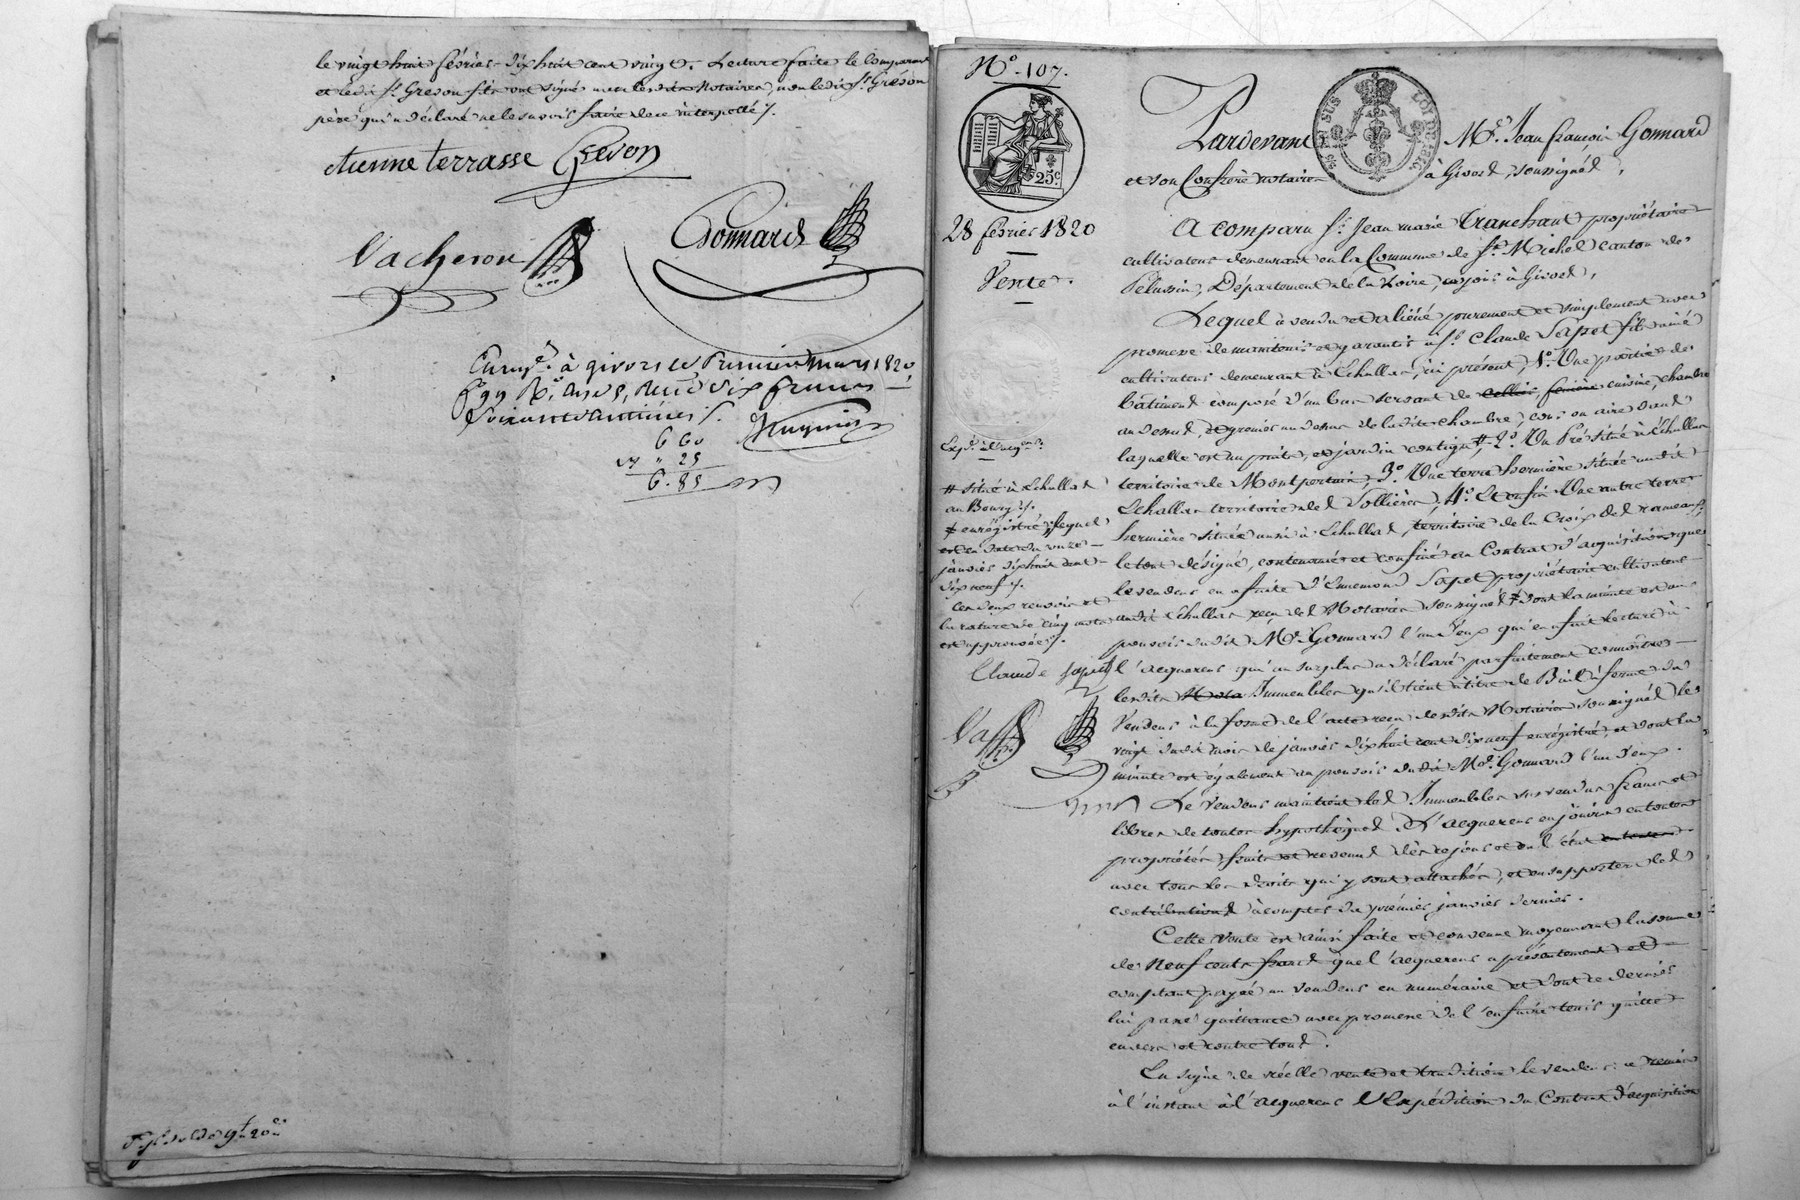 le vingt huit février dix huit cent vingt. Lecture faite le comparant
et ledit Sr. Grevon fils ont signé avec lesdits Notaires, non ledit Sr. Grevon
père qui a déclaré ne le savoir faire de ce interpellé ./.
etienne terrasse Grevon
Vacheron
Gonnard
Enregé. à givors le Premier mars 1820
fo 99 Ro. Reçu six francs
soixante centimes ./.
6 60
" 25
6. 85
No. 107.
25c.
28 février 1820
Vente.
Pardevant Me. Jean françois Gonnard
et son Confrère notaires à Givors, soussignés,
A comparu Sr. Jean marie Tranchant propriétaire
cultivateur demeurant en la Commune de St. Michel canton de
Pélussin, Département de la Loire, ce jour à Givors,
Lequel a vendu et aliéné purement et simplement avec
promesse de maintenir et garantir à Sr. Claude Sapet fils ainé
cultivateur demeurant à Echallas, ici présent, 1o. Une portion de
bâtiment composé d'un bas servant de cellier, cuisine, chambre
au dessus, et grenier au dessus de ladite chambre, cour ou aire dans
laquelle est un puits, et jardin contigu #, 2o. Un Pré situé à Echallas
territoire de Montpertuis, 3o. Une terre hermière située audit
Echallas territoire de Sollières, 4o. Et enfin Une autre terre
hermière située aussi à Echallas, territoire de la Croix des rameaux,
le tout désigné, contenances et confiné au Contrat d'acquisition que
le vendeur en a faite d'Ennemond Sapet propriétaire cultivateur
audit Echallas reçu des Notaires soussignés # dont la minute est au
pouvoir dudit Me. Gonnard l'un d'eux qui en a fait lecture à
l'acquereur qui au surplus a déclaré parfaitement connoître
lesdits Immeubles qu'il tient à titre de Bail à ferme du
Vendeur à la forme de l'acte reçu desdits Notaires soussignés le
vingt dudit mois de janvier dix huit cent dix neuf enrégistré, et dont la
minute est également au pouvoir dudit Me. Gonnard l'un d'eux.
Le vendeur maintient les Immeubles sus vendus francs et
libres de toutes hypothèques. L'acquereur en jouira en toutes
propriétés, fruits et revenus dès ce jour et en l'état
avec tous les droits qui y sont attachés, et en supportera les
contributions à compter du premier janvier dernier.
Cette vente est ainsi faite et convenue moyennant la somme
de Neuf cents francs que l'acquereur a présentement et
comptant payée au vendeur en numéraire et dont ce dernier
lui passe quittance avec promesse de l'en faire tenir quitte
envers et contre tous.
En signe de réelle vente et tradition le vendeur a remis
à l'instant à l'acquereur l'Expédition du Contrat d'acquisition
# situé à Echallas
au Bourg ./.
# enrégistré, lequel
est en date du onze
janvier dix huit cent
dix neuf ./.
Les deux renvois et
la rature de cinq mots
est approuvée ./.
Claude sapet